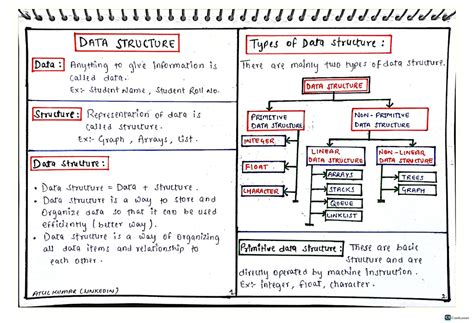 DATA STRUCTURE
Data: Anything to give information is
called data.
Ex:- Student Name, Student Roll No.
Structure: Representation of data is
called structure.
Ex:- Graph, Arrays, List.
Data structure:
• Data structure = Data + structure.
• Data structure is a way to store and
Organize data so that it can be used
efficiently (better way).
• Data structure is a way of organizing
all data items and relationship to
each other.
ATUL KUMAR (LINKEDIN)
1
Types of Data structure:
There are mainly two types of data structure.
DATA STRUCTURE
PRIMITIVE
DATA STRUCTURE
INTEGER
FLOAT
CHARACTER
NON-PRIMITIVE
DATA STRUCTURE
LINEAR
DATA STRUCTURE
ARRAYS
STACKS
QUEUE
LINKLIST
NON-LINEAR
DATA STRUCTURE
TREES
GRAPH
Primitive data structure: These are basic
structure and are
directly operated by machine instruction.
Ex:- integer, float, character.
2